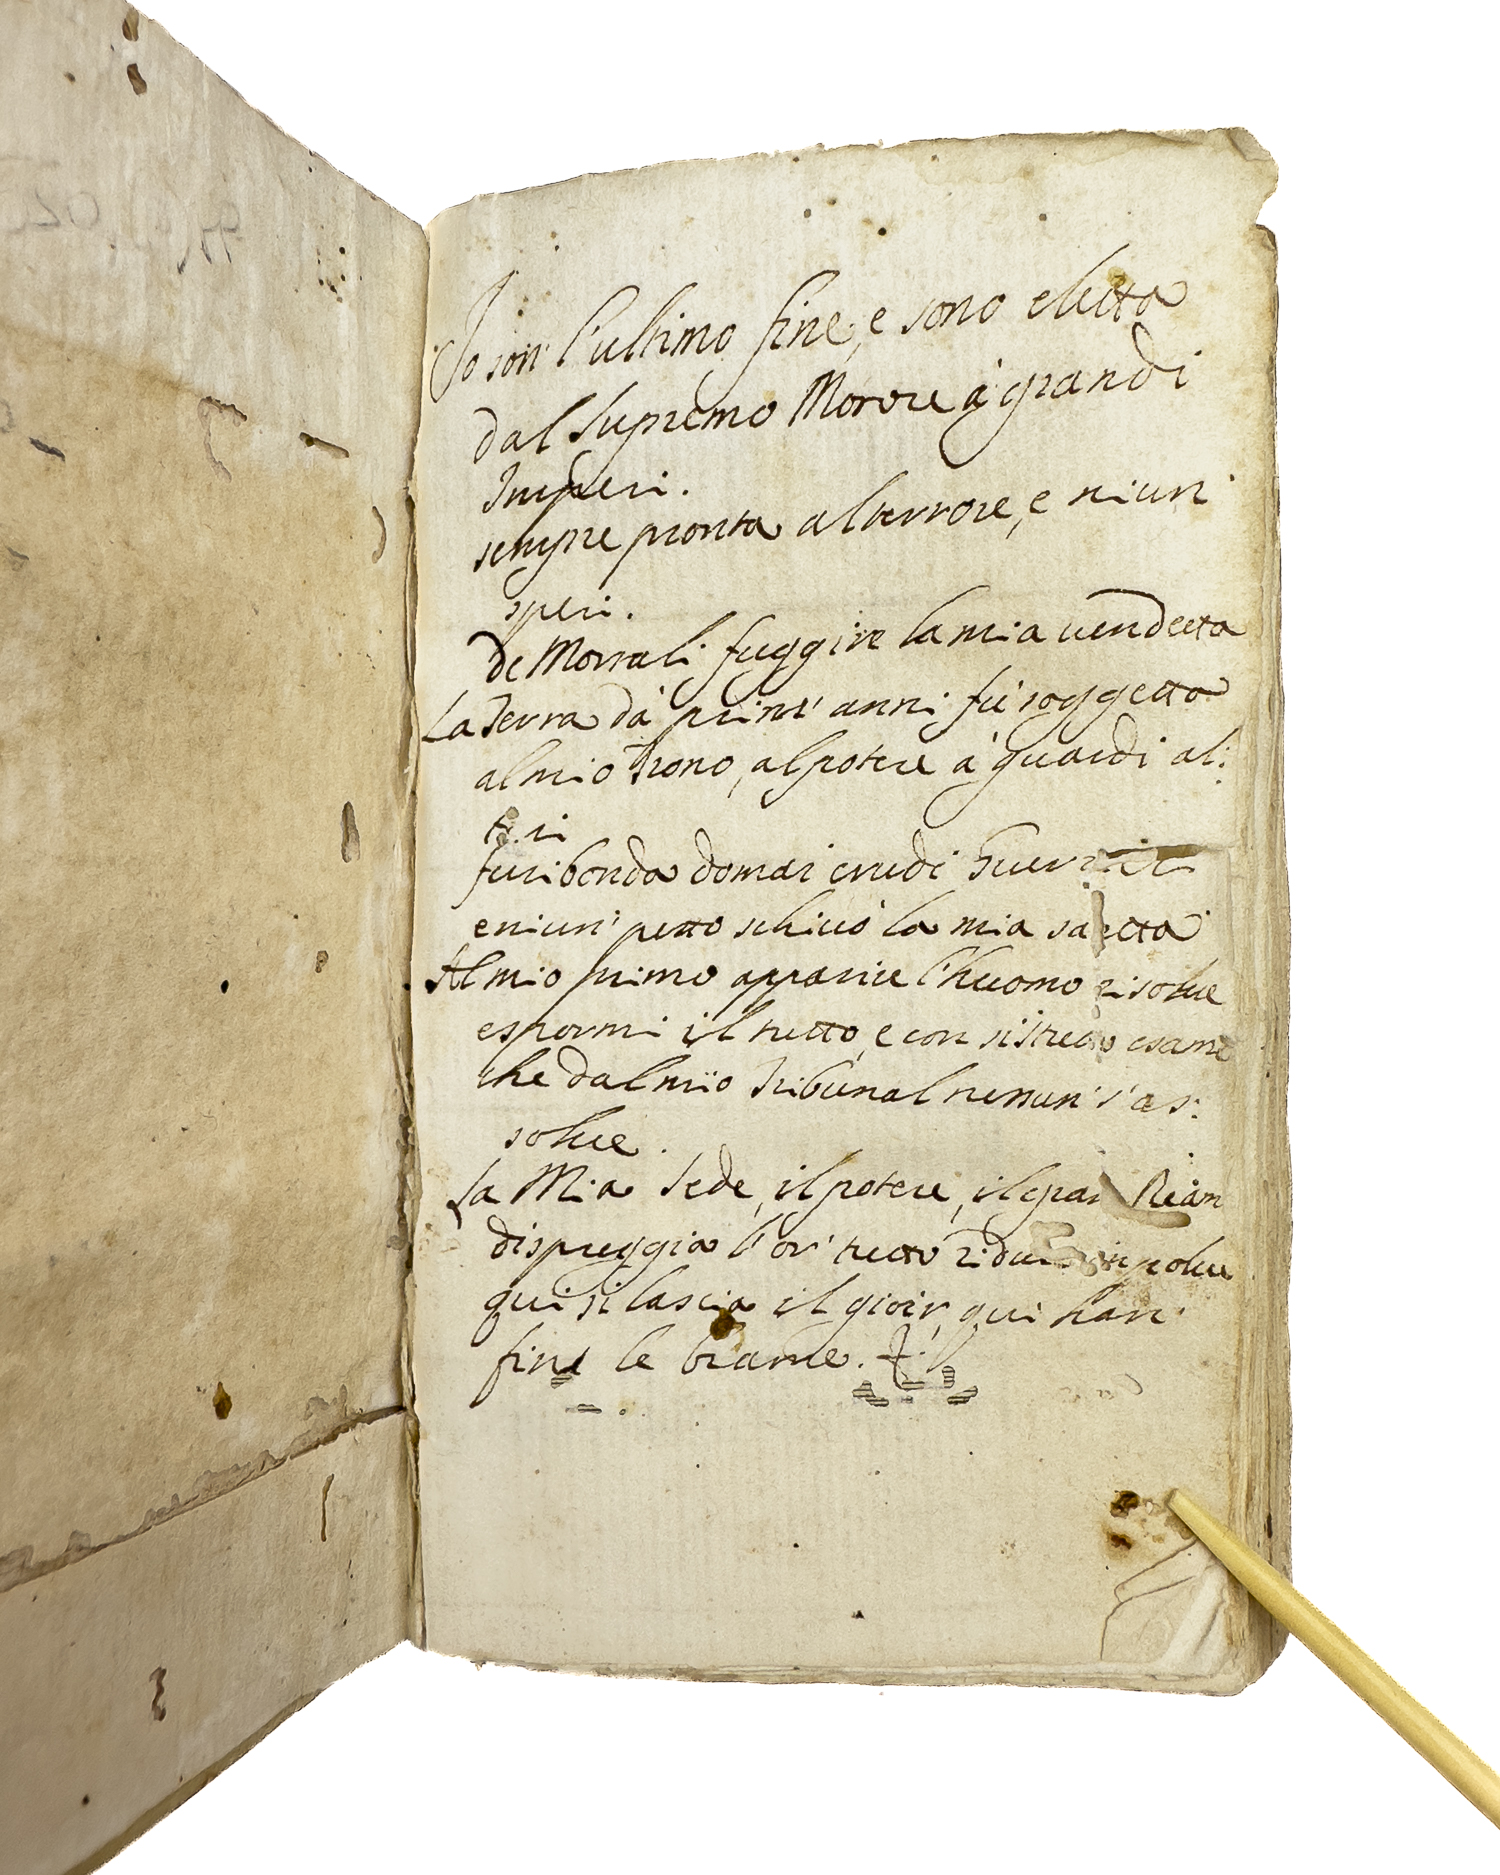 Io son' l'ultimo fine, e sono eletta
dal supremo Motore à grandi
Imperi.
sempre pronta al terrore, e niun'
speri.
de Mortali fuggire la mia vendetta
La Terra dà prim' anni fù soggetta
al mio Trono, al potere à guardi al:
teri
furibonda domai crudi Guerrie
e niun' petto schivò la mia saetta
Al mio primo apparire l'huomo risolve
espormi il tutto, e con sì stretto esame
che dal mio Tribunal nessun' s'as:
solve.
La Mia Sede, il potere, il gran
dispreggia l'or' tutto riduce in polve
qui si lascia il gioir, qui han'
fine le brame.